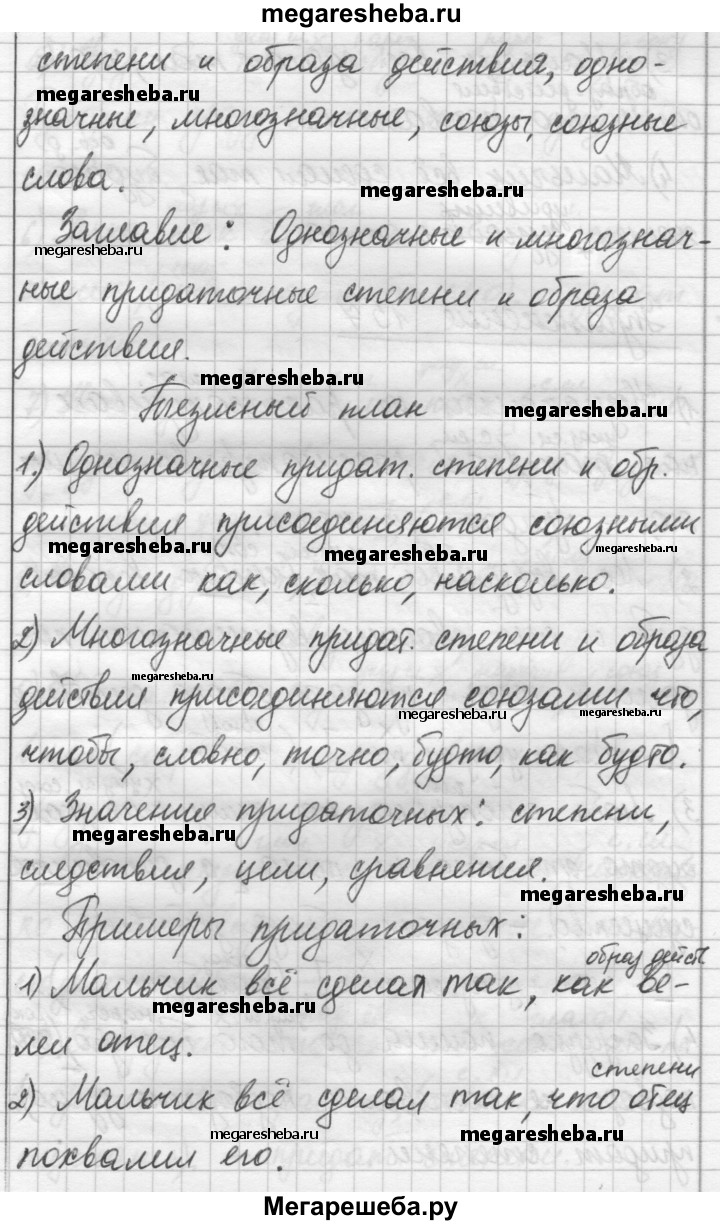 megaresheba.ru
степени и образа действия, одно-
megaresheba.ru
значные, многозначные, союзы, союзные
слова.
megaresheba.ru
Заглавие: Однозначные и многознач-
megaresheba.ru
ные придаточные степени и образа
действия.
megaresheba.ru
Тезисный план
megaresheba.ru
1.) Однозначные придат. степени и обр.
действия присоединяются союзными
megaresheba.ru megaresheba.ru megaresheba.ru
словами как, сколько, насколько.
2) Многозначные придат. степени и образа
megaresheba.ru
действия присоединяются союзами что,
megaresheba.ru megaresheba.ru
чтобы, словно, точно, будто, как будто.
3) Значения придаточных: степени,
megaresheba.ru
следствия, цели, сравнения.
megaresheba.ru
Примеры придаточных:
образ дейст
1) Мальчик всё сделал так, как ве-
megaresheba.ru
лел отец.
степени
2) Мальчик всё сделал так, что отец
megaresheba.ru megaresheba.ru
похвалил его.
Мегарешеба.ру